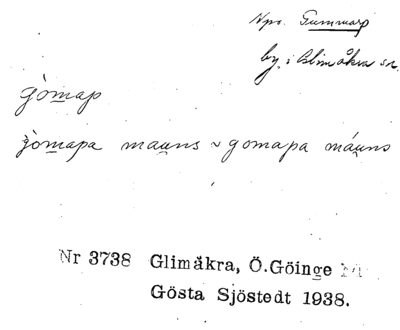 Npr. Gummarp
by i Glimåkra sn.
gòmap
gòmapa mauns ~ gomapa máuns
Nr 3738 Glimåkra, Ö.Göinge
Gösta Sjöstedt 1938.